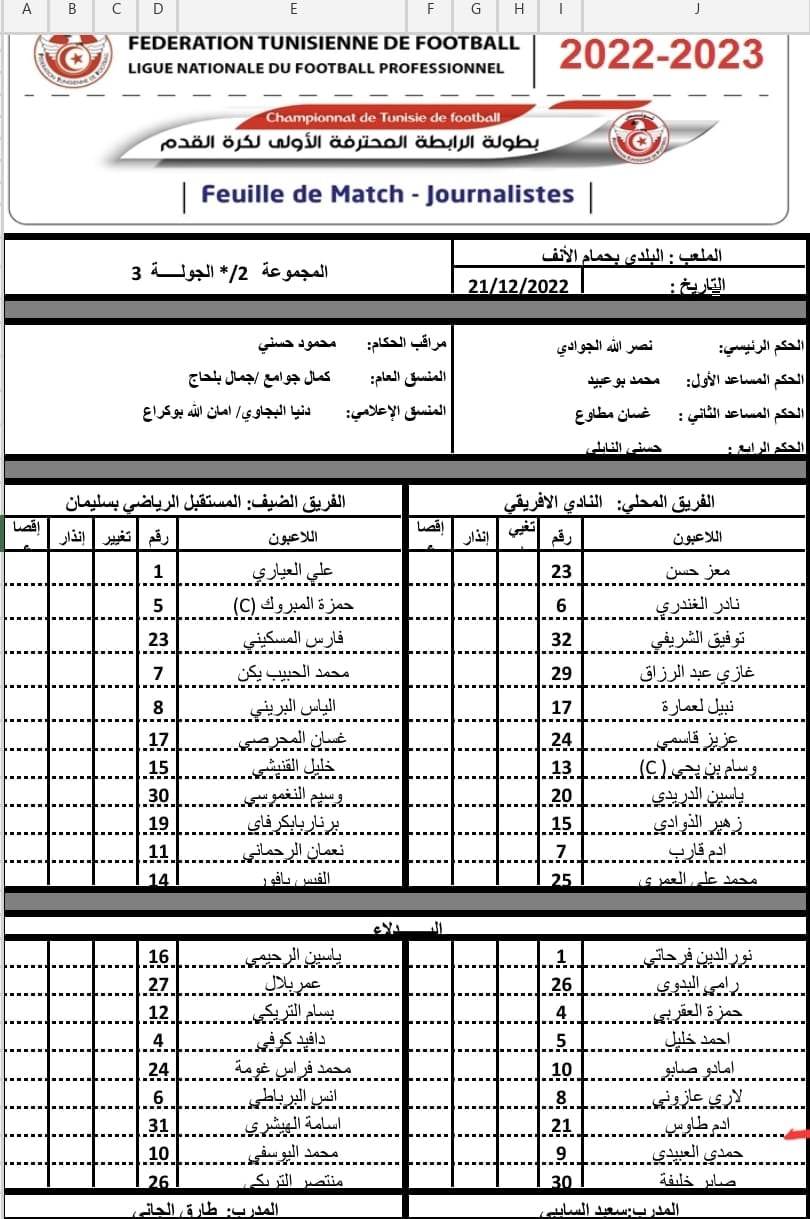 A B C D E F G H I J
FEDERATION TUNISIENNE DE FOOTBALL
LIGUE NATIONALE DU FOOTBALL PROFESSIONNEL
2022-2023
Championnat de Tunisie de football
بطولة الرابطة المحترفة الأولى لكرة القدم
Feuille de Match - Journalistes
الملعب : البلدي بحمام الأنف
التاريخ : 21/12/2022
المجموعة 2/* الجولـــة 3
الحكم الرئيسي: نصر الله الجوادي
مراقب الحكام: محمود حسني
الحكم المساعد الأول: محمد بوعبيد
المنسق العام: كمال جوامع /جمال بلحاج
الحكم المساعد الثاني : غسان مطاوع
المنسق الإعلامي: دنيا البجاوي/ امان الله بوكراع
الحكم الرابع : حسني النايلي
الفريق المحلي: النادي الافريقي
الفريق الضيف: المستقبل الرياضي بسليمان
اللاعبون رقم تغيي إنذار إقصا
اللاعبون رقم تغيير إنذار إقصا
معز حسن 23 علي العياري 1
نادر الغندري 6 حمزة المبروك (C) 5
توفيق الشريفي 32 فارس المسكيني 23
غازي عبد الرزاق 29 محمد الحبيب يكن 7
نبيل لعمارة 17 الياس البريني 8
عزيز قاسمي 24 غسان المحرصي 17
وسام بن يحي ( C) 13 خليل القنيشي 15
ياسين الدريدي 20 وسيم النغموسي 30
زهير الذوادي 15 برنار بابكر فاي 19
ادم قارب 7 نعمان الرحماني 11
محمد علي العمري 25 الفيس بافور 14
البـــــدلاء
نور الدين فرحاتي 1 ياسين الرحيمي 16
رامي البدوي 26 عمر بلال 27
حمزة العقربي 4 بسام التريكي 12
احمد خليل 5 دافيد كوفي 4
امادو صابو 10 محمد فراس غومة 24
لاري عازوني 8 انس البرباطي 6
ادم طاوس 21 اسامة الهيشري 31
حمدي العبيدي 9 محمد اليوسفي 10
صابر خليفة 30 منتصر التريكي 26
المدرب:سعيد السايبي
المدرب: طارق الجاني